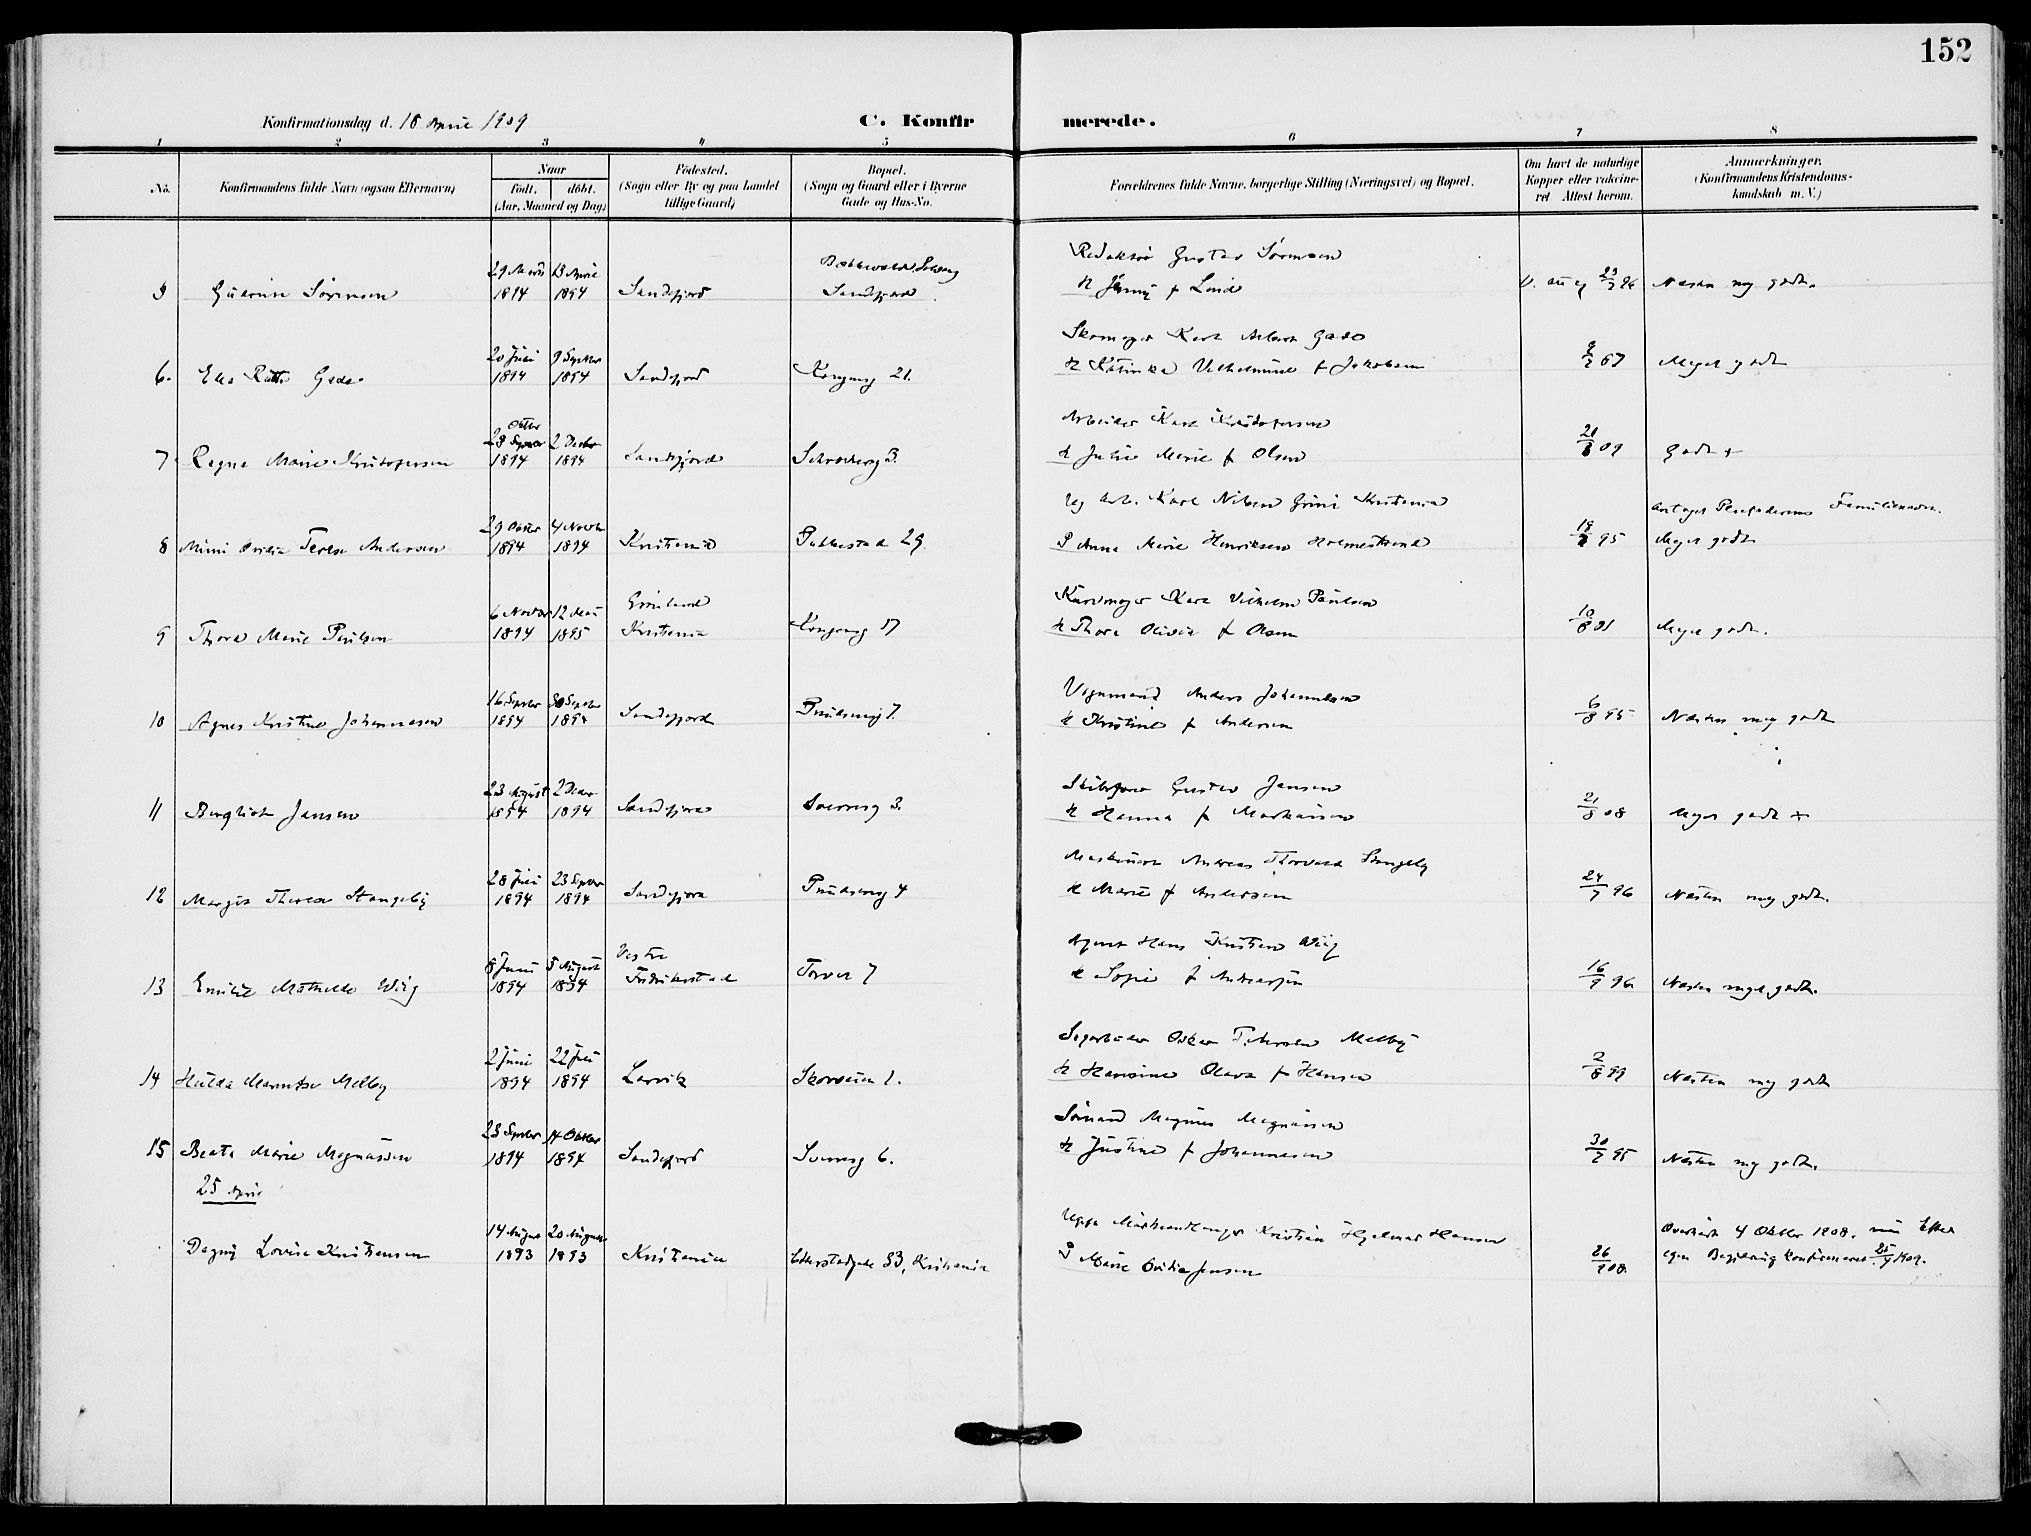 152
Konfirmationsdag d. 18 April 1909
C. Konfirmerede.
1 2 3 4 5 6 7 8
No. Konfirmandens fulde Navn (ogsaa Efternavn)
Naar født. døbt. (Aar, Maaned og Dag)
Fødested. (Sogn eller By og paa Landet tillige Gaard)
Bopæl. (Sogn og Gaard eller i Byerne Gade og Hus-No.
Forældrenes fulde Navne, borgerlige Stilling (Næringsvei) og Bopæl.
Om havt de naturlige Kopper eller vakcineret Attest herom.
Anmærkninger. (Konfirmandens Kristendomskundskab m. V.)
Sørensen 29 Marts 1894 13 April 1894 Sandefjord Sandefjord
Redaktør Gustav Sørensen
H Jenny f Lind
Næsten meg godt.
6. Gade 20 Juli 1894 9 Septbr 1894 Sandefjord Kongeng 21.
Skomager Karl Albert Gade
H Katinka Vilhelmine f Jakobsen
Meget godt
7 Ragna Marie Kristofersen Oktbr 28 Septbr 1894 2 Decbr 1894 Sandefjord 3.
Arbeider Karl Kristofersen
H Julie Marie f Olsen
21/3 09 Godt +
8 Mimi Terese Andersen 29 Oktbr 1894 4 Novbr 1894 Kristiania 29
Karl Nilsen Kristiania
P Anna Marie Henriksen Holmestrand
Familienavn.
Meget godt
9 Thora Marie Paulsen 6 Novbr 1894 12 Mai 1895 Grønland Kristiania Kongeng 17
Kurvmager Karl Vilhelm Paulsen
H Thora Olivia f Olsen
Meget godt.
10 Agnes Kristine Johannesen 16 Septbr 1894 30 Septbr 1894 Sandefjord Prindseng 7.
Vognmand Anders Johannesen
H Kristine f Andersen
6/8 95 Næsten meg godt
11 Bergliot Jansen 23 August 1894 2 Decbr 1894 Sandefjord 3.
Gustav Jansen
H Hanna f Markussen
21/3 08 Meget godt +
12 Margit Therese Stangeby 28 Juli 1894 23 Septbr 1894 Sandefjord Prindseng 4
Maskinist Andreas Thorvald Stangeby
H Marie f Andersen
24/7 96 Næsten meg godt.
13 Emilie Mathilde Wiig 8 Juni 1894 5 August 1894 Vestre Fredrikstad Torvet 7
Agent Hans Kristian Wiig
H Sofie f Andreassen
16/9 96 Næsten meget godt.
14 Hulda Melby 2 Juni 1894 22 Juli 1894 Larvik 1.
Oskar Melby
H Hansine Olava f Hansen
2/8 99 Næsten meg godt
15 Beata Marie Magnussen 23 Septbr 1894 14 Oktbr 1894 Sandefjord 6.
Sømand Magnus Magnussen
H Justine f Johannesen
30/7 95 Næsten meg godt.
25 April
Dagny Lovise Kristiansen 14 August 1893 20 August 1893 Kristiania 33, Kristiania
Kristian Hjalmar Hansen
P Marie Jensen
26/9 08.
4 Oktbr 1908. Efter
egen Begjæring konfirmeret 25/4 1909.